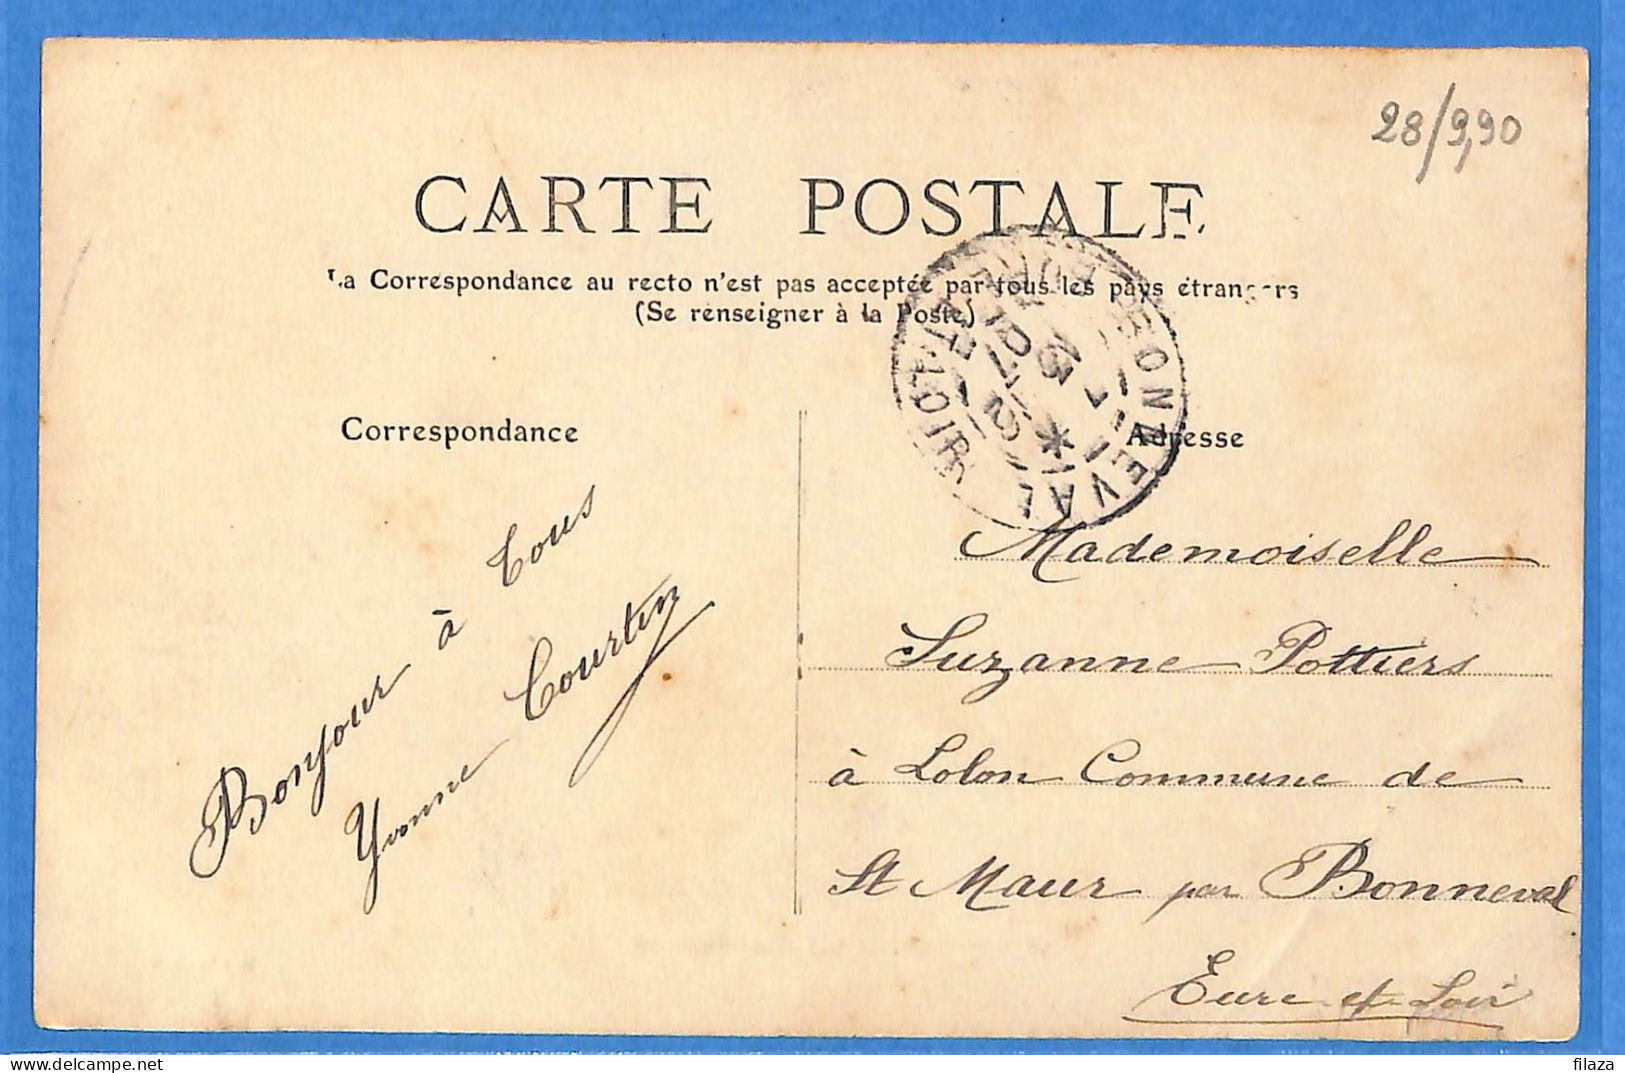 28/9,90
CARTE POSTALE
La Correspondance au recto n'est pas acceptée par tous les pays étrangers
(Se renseigner à la Poste)
BONNEVAL
EURE ET LOIR
Correspondance
Adresse
Bonjour à tous
Yvonne Courtin
Mademoiselle
Suzanne Pottiers
à Lolon Commune de
St Maur par Bonneval
Eure et Loir
filaza
delcampe.net